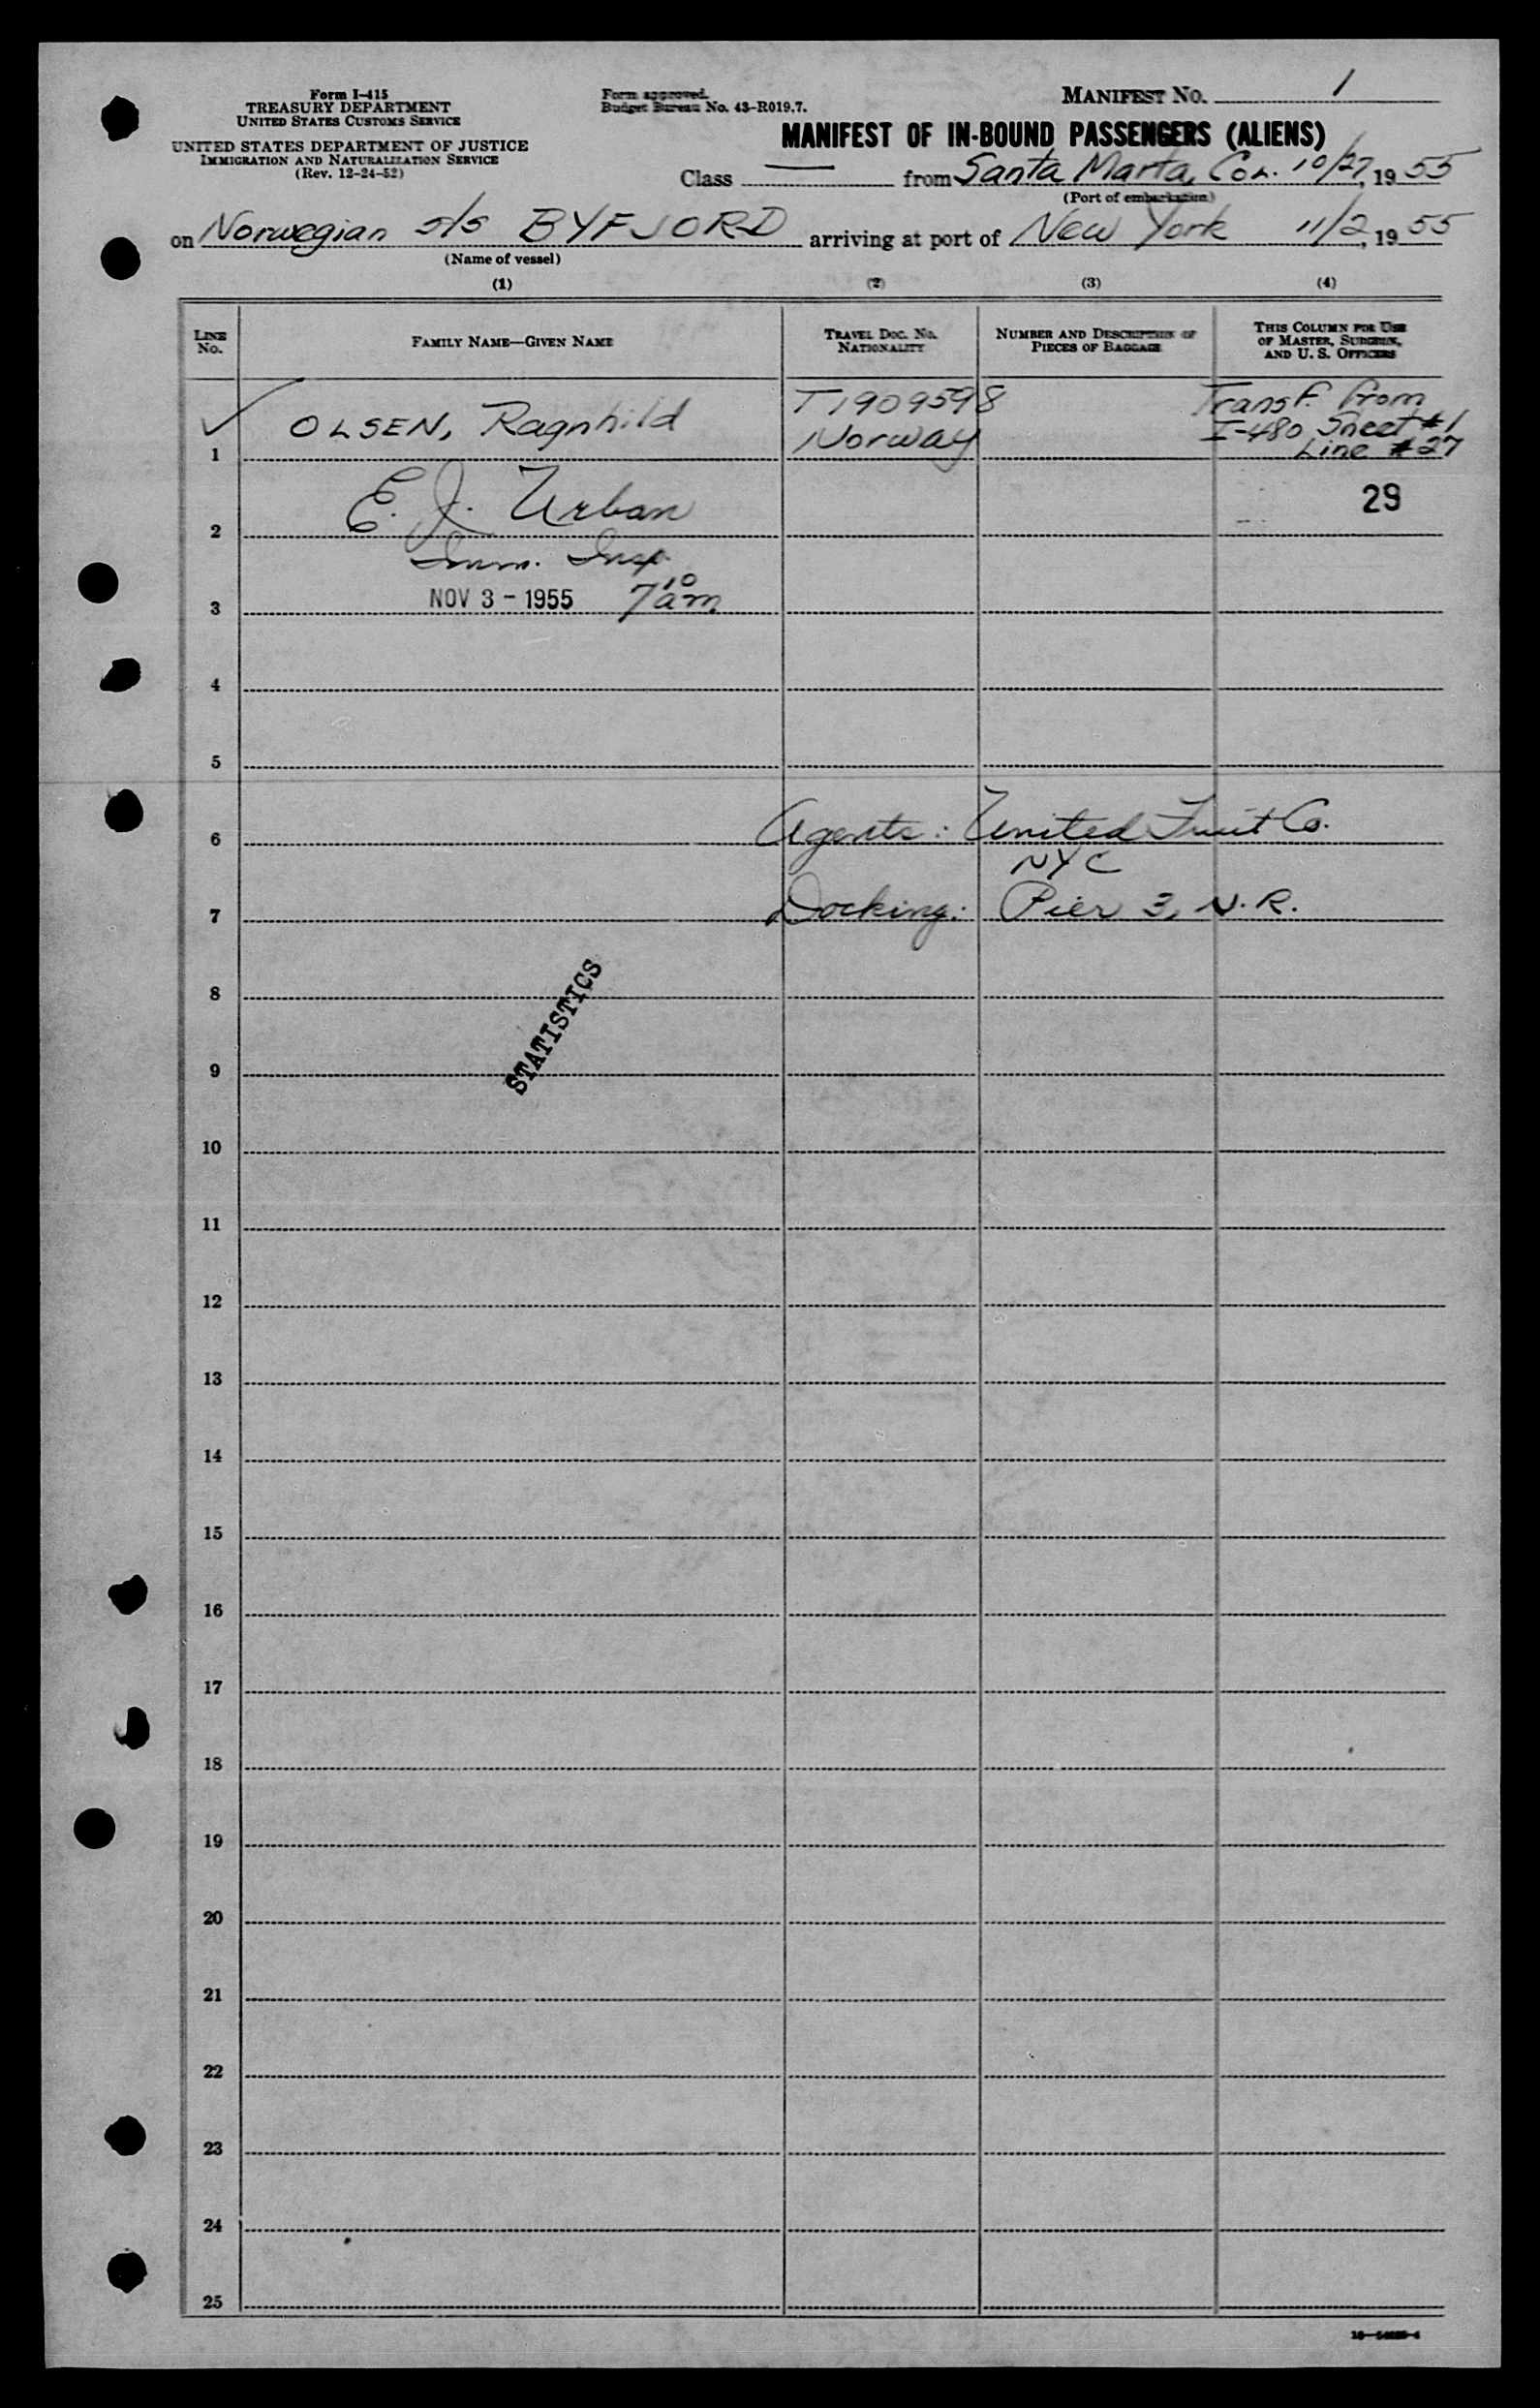 Form I-415
TREASURY DEPARTMENT
UNITED STATES CUSTOMS SERVICE
UNITED STATES DEPARTMENT OF JUSTICE
IMMIGRATION AND NATURALIZATION SERVICE
(Rev. 12-24-52)
Form approved.
Budget Bureau No. 43-R019.7.
MANIFEST NO. 1
MANIFEST OF IN-BOUND PASSENGERS (ALIENS)
Class — from Santa Marta, Col. 10/27, 19 55
(Port of embarkation)
on Norwegian s/s BYFJORD arriving at port of New York 11/2, 19 55
(Name of vessel)
(1) (2) (3) (4)
LINE No. FAMILY NAME—GIVEN NAME TRAVEL DOC. No. NATIONALITY NUMBER AND DESCRIPTION OF PIECES OF BAGGAGE THIS COLUMN FOR USE OF MASTER, SURGEON, AND U. S. OFFICERS
1 OLSEN, Ragnhild T1909598 Norway Transf. from I-480 Sheet #1 Line #27
2 E. J. Urban 29
Imm. Insp.
3 NOV 3 - 1955 7 10 am
4
5
6 Agents: United Fruit Co.
NYC
7 Docking: Pier 3, N.R.
8
STATISTICS
9
10
11
12
13
14
15
16
17
18
19
20
21
22
23
24
25